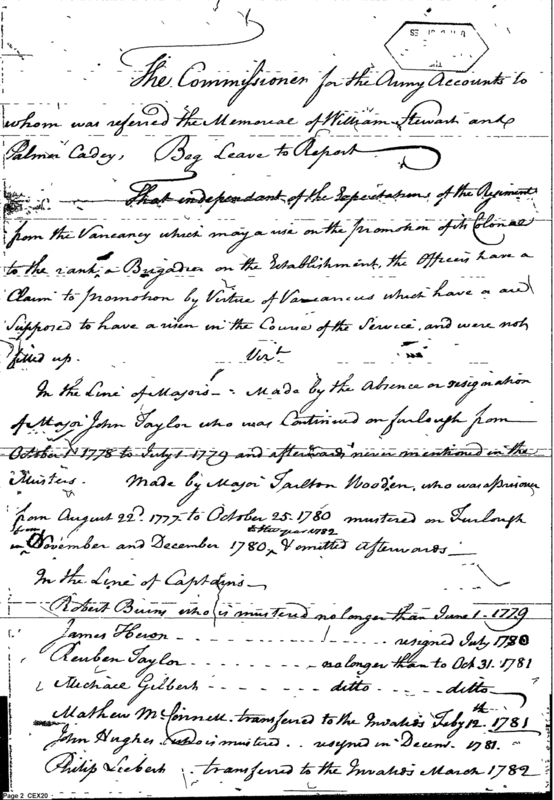 The Commissioner for the Army Accounts to
whom was referred the Memorial of William Stewart and
Palmer Cadey, Beg Leave to Report
That independant of the Expectations of the Regiment
from the Vancancy which may a use on the promotion of its Colonel
to the rank a Brigadier on the Establishment, the Officers have a
Claim to promotion by Virtue of Vancancies which have a are
Supposed to have a risen in the Course of the Service, and were not
filled up. Vizt
In the Line of Majors - Made by the Absence or resignation
of Major John Taylor who was Continued on furlough from
October 1 1778 to July 1 1779 and afterwards never mentioned in the
Musters. Made by Major Tarlton Wooden, who was a prisoner
from August 22d. 1777 to October 25. 1780 mustered on Furlough
from to the year 1782
in November and December 1780, & omitted afterwards
In the Line of Captains
Robert Burns who is mustered no longer than June 1 - 1779
James Heron - - - - resigned July 1780
Reuben Taylor - - - - no longer than to Oct 31. 1781
Michael Gilbert - - - - ditto - - - - ditto
Mathew McConnell - transferred to the Invalids Feby 12th 1781
John Hughes who is mustered - - resigned in Decem. 1781.
Philip Liebert transferred to the Invalids March 1782
Page 2 CEX20